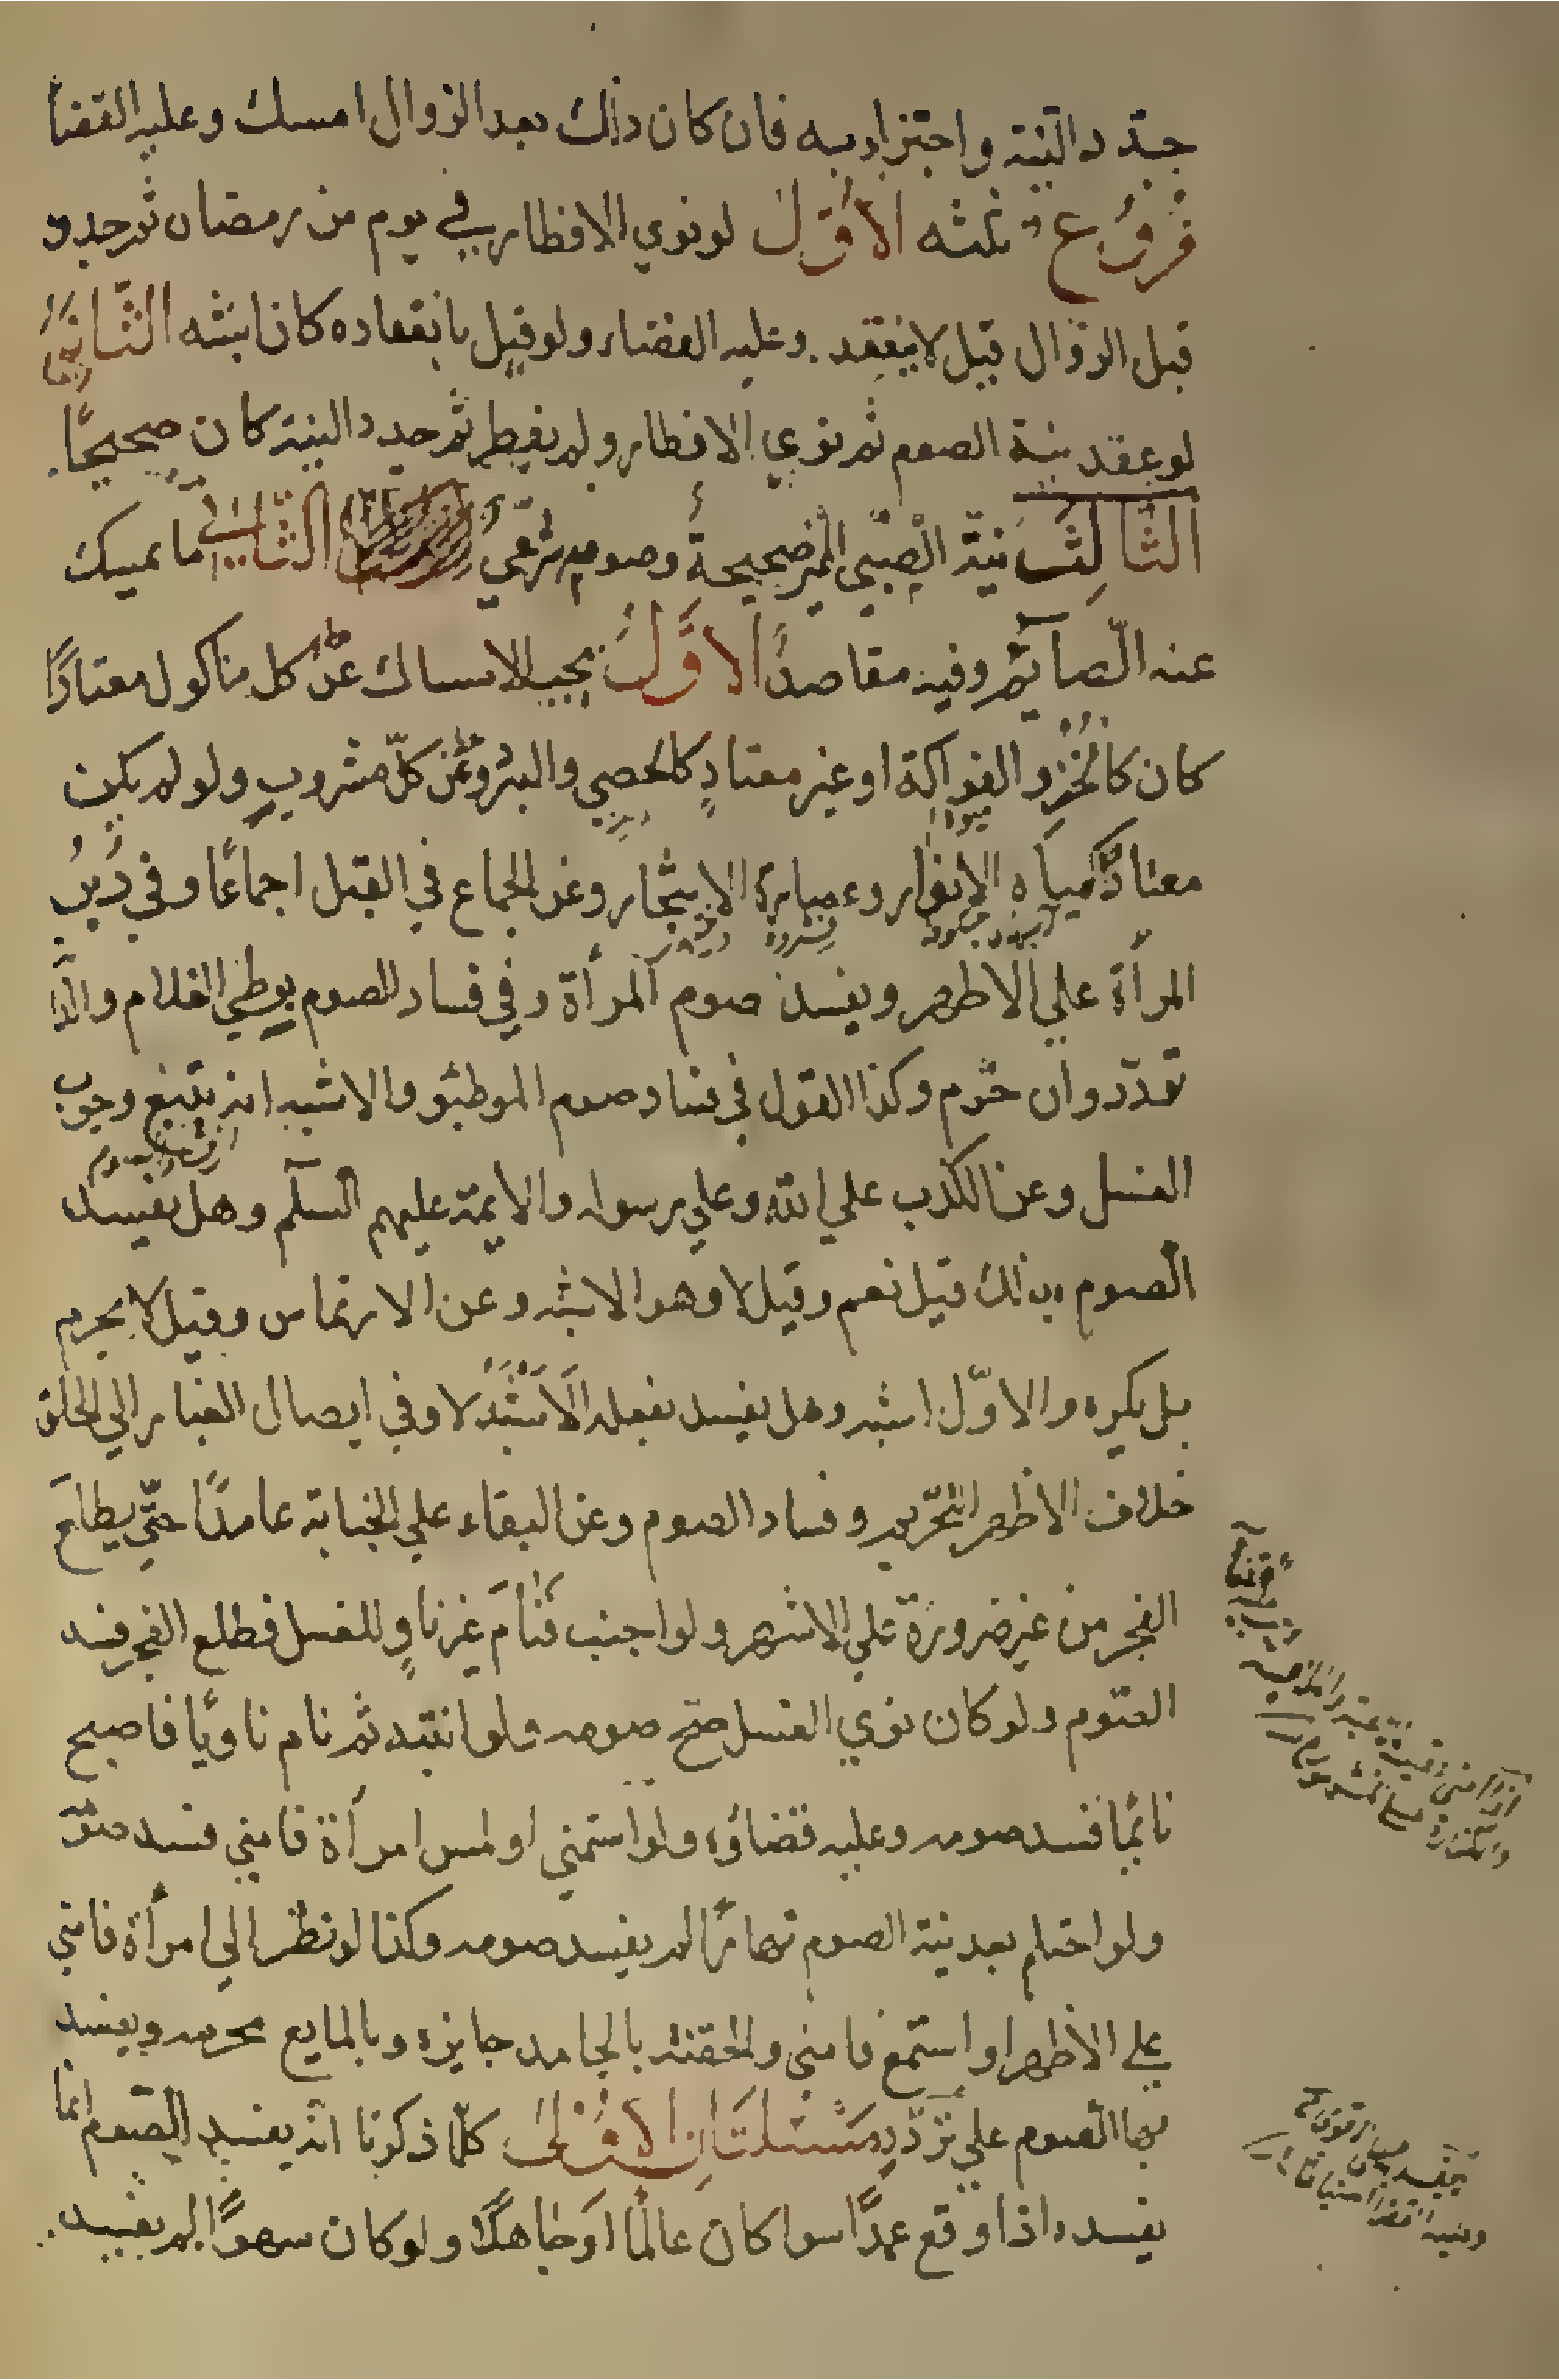 جدد النية واجتزا به فان كان ذلك بعد الزوال امسك وعليه القضا
فروع ثلثه الاول لو نوي الافطار في يوم من رمضان ثم جدد
قبل الزوال قيل لا ينعقد وعليه القضاء ولو قيل بانعقاده كان اشبه الثاني
لو عقد نية الصوم ثم نوي الافطار ولم يفطر ثم جدد النية كان صحيحًا
الثالث نية الصبي المميز صحيحة وصومه شرعي الثاني ما يمسك
عنه الصآئم وفيه مقاصد الاول يجب الامساك عن كل ماكول معتادًا
كان كالخبز والفواكة او غير معتادٍ كالحصي والبرد وعن كلّ مشروبٍ ولو لم يكن
معتادًا كمياه الانوار وعصارة الاشجار وعن الجماع في القبل اجماعًا وفي دُبُرِ
المرأة علي الاظهر ويفسد صوم المرأة وفي فساد الصوم بوطي الغلام والدا
تردّد وان حرّم وكذا القول في فساد صوم الموطئو والاشبه انه يتبع وجوب
الغسل وعن الكذب علي الله وعلي رسوله والايمة عليهم السلم وهل يفسد
الصوم بذلك قيل نعم وقيل لا وهو الاشبه وعن الارتماس وقيل لا يحرم
بل يكره والاوّل اشبه وهل يفسد بفعله الاشبه لا وفي ايصال الغبار الي الحلق
خلاف الاظهر التحريم وفساد الصوم وعن البقاء علي الجنابة عامدًا حتّي يطلع
الفجر من غير ضرورة علي الاشهر ولو اجنب فنام غير ناوٍ للغسل فطلع الفجر فسد
الصوم ولو كان نوي الغسل صح صومه ولو انتبه ثم نام ناويًا فاصبح
نائمًا فسد صومه وعليه قضاؤه ولو استمني او لمس امرأة فامني فسد صو
ولو احتلم بعد نية الصوم نهارًا لم يفسد صومه وكذا لو نظر الي امرأة فامني
علي الاظهر او استمع فامني والحقنه بالجامد جايزه وبالمايع محرمه ويفسد
بها الصوم علي تردّد مسئلتان الاولى كلما ذكرنا انه يفسد الصوم انما
يفسده اذا وقع عمدًا سوا كان عالمًا او جاهلًا ولو كان سهوًا لم يفسد